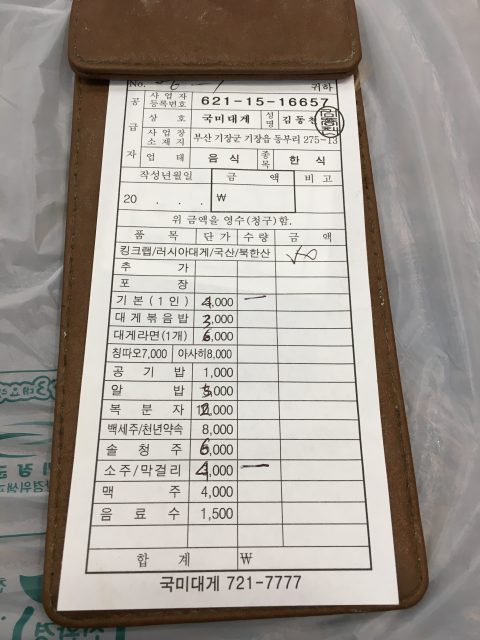 No. 귀하
공급자
사업자등록번호 621-15-16657
상호 국미대게 성명 김동천
사업장소재지 부산 기장군 기장읍 동부리 275-13
업태 음식 종목 한식
작성년월일 금액 비고
20 . . . ₩
위 금액을 영수(청구)함.
품목 단가 수량 금액
킹크랩/러시아대게/국산/북한산
추가
포장
기본(1인) 4,000 一
대게볶음밥 3,000
대게라면(1개) 6,000
칭따오7,000 아사히8,000
공기밥 1,000
알밥 5,000
복분자 12,000
백세주/천년약속 8,000
솔청주 6,000
소주/막걸리 4,000 一
맥주 4,000
음료수 1,500
합계 ₩
국미대게 721-7777